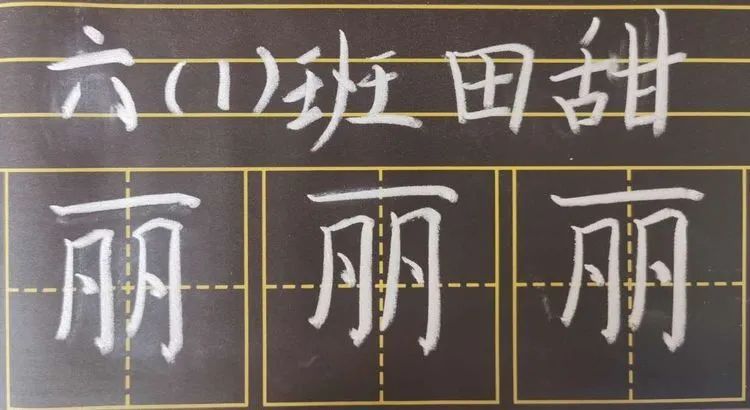 六(1)班 田甜
丽 丽 丽